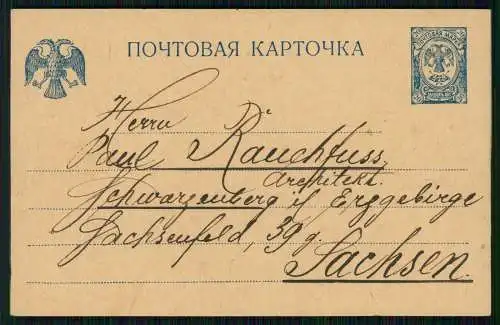 ПОЧТОВАЯ КАРТОЧКА
Herrn
Paul Rauchfuss
Architekt.
Schwarzenberg i/ Erzgebirge
Sachsenfeld, 39 g.
Sachsen.